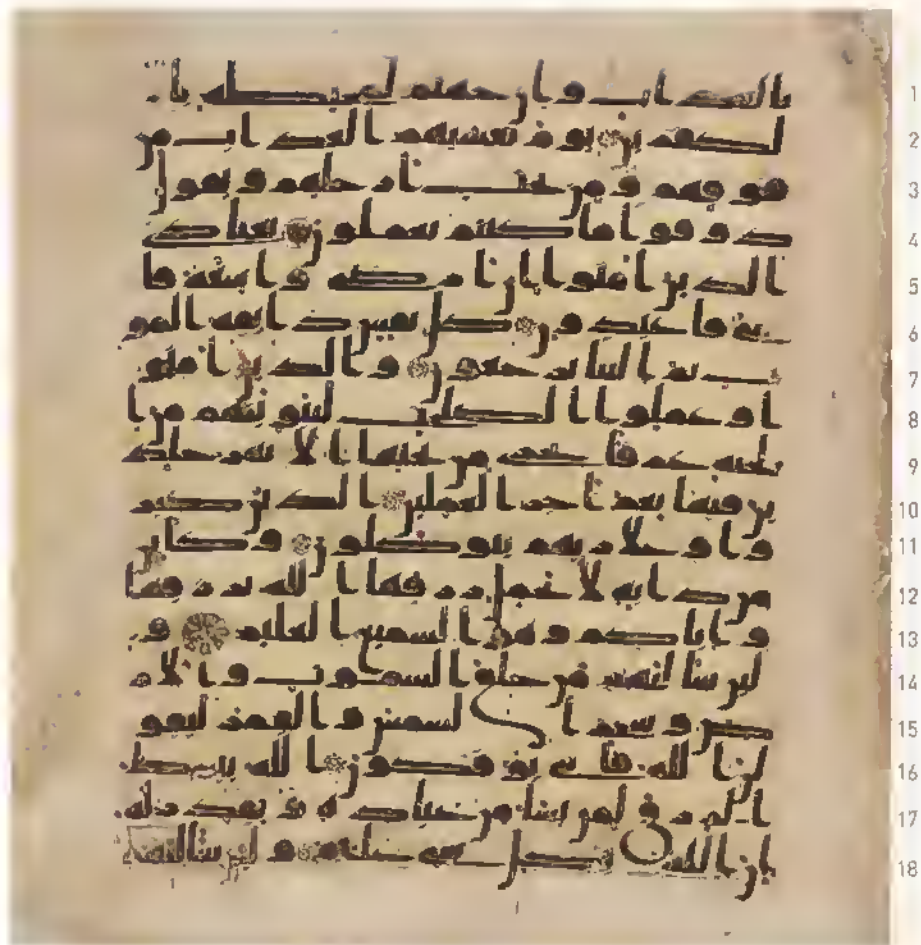 بالعذاب وان جهنم لمحيطه با 1
لكفرين يوم يغشيهم العذاب من 2
فوقهم ومن تحت ارجلهم ويقول 3
ذوقوا ما كنتم تعملون يعباد 4
ى الذين امنوا ان ارضى وسعة فا 5
يى فاعبدون كل نفس ذايقة المو 6
ت ثم الينا ترجعون والذين امنو 7
ا وعملوا الصلحت لنبوينهم من ا 8
لجنة غرفا تجرى من تحتها الانهر خلد 9
ين فيها نعم اجر العملين الذين صبر 10
وا وعلى ربهم يتوكلون وكاين 11
من دابة لا تحمل رزقها الله يرزقها 12
واياكم وهو السميع العليم و 13
لين سالتهم من خلق السموت والار 14
ض وسخر الشمس والقمر ليقو 15
لن الله فانى يوفكون الله يبسط 16
الرزق لمن يشا من عباده ويقدر له 17
ان الله بكل شى عليم ولين سالتهم 18